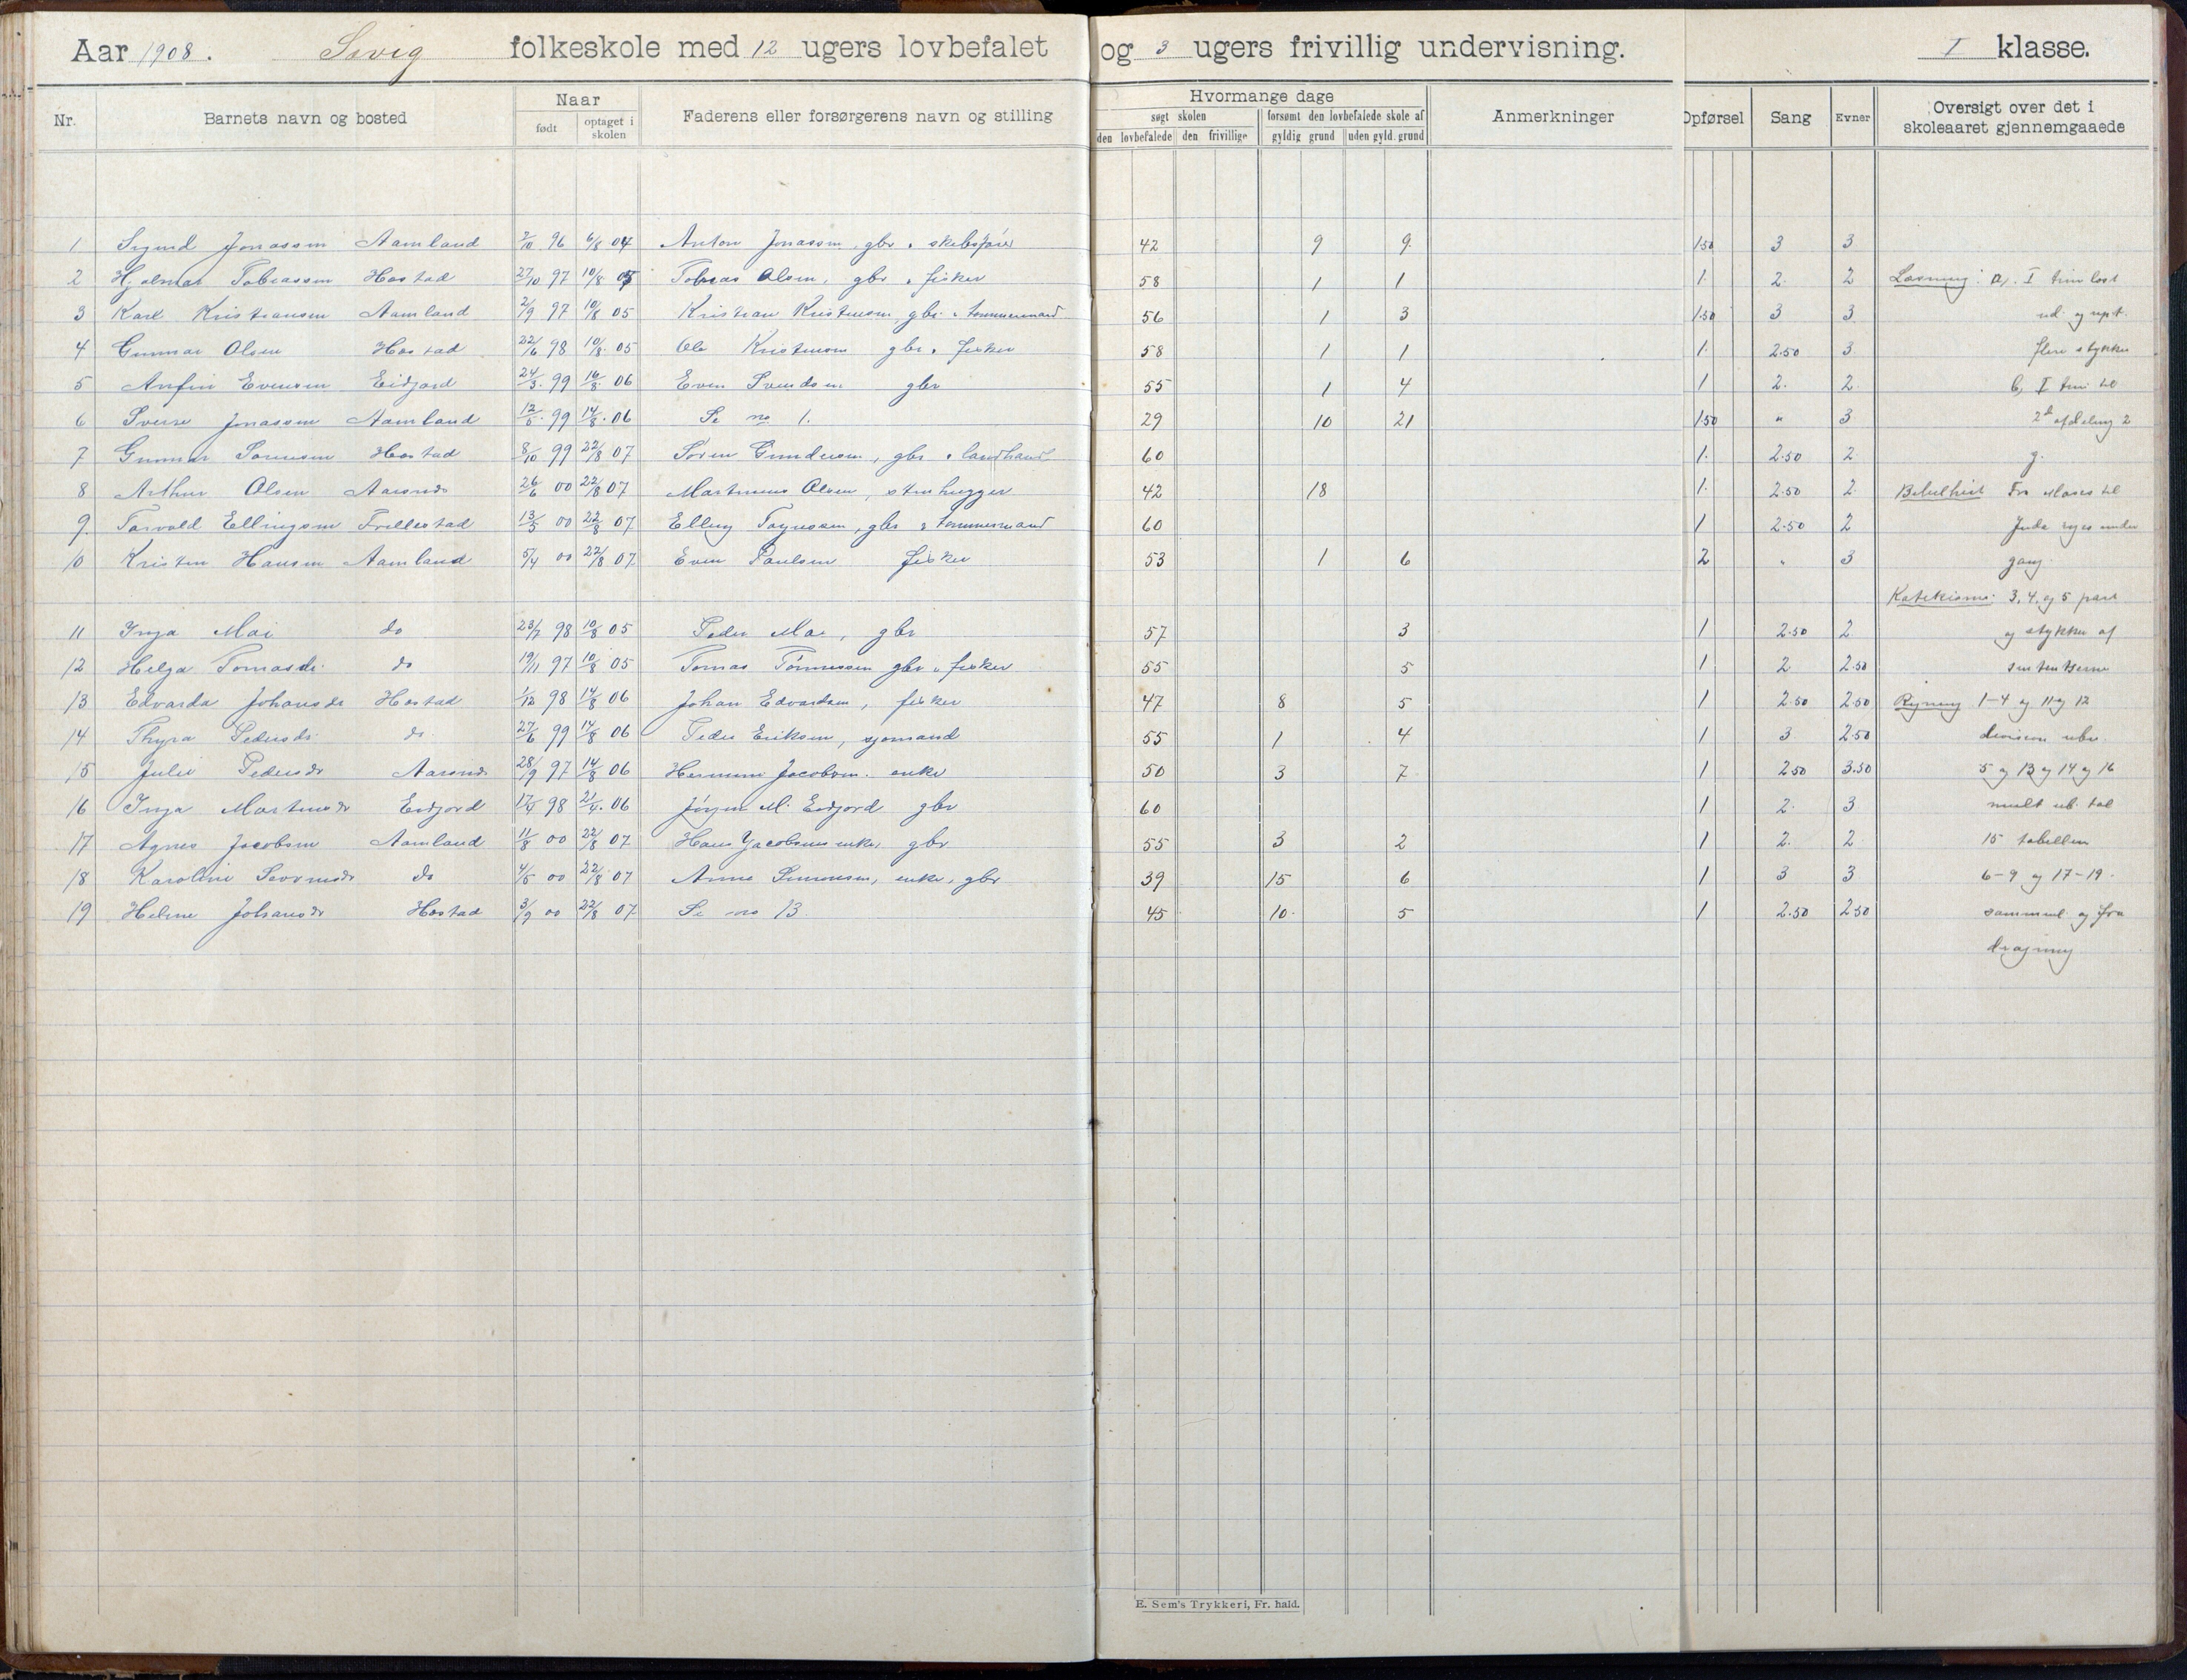 Aar 1908. Sævig folkeskole med 12 ugers lovbefalet og 3 ugers frivillig undervisning. I klasse.
Nr. Barnets navn og bosted Naar født optaget i skolen Faderens eller forsørgerens navn og stilling Hvormange dage søgt skolen den lovbefalede den frivillige forsømt den lovbefalede skole af gyldig grund uden gyld. grund Anmerkninger Opførsel Sang Evner Oversigt over det i skoleaaret gjennemgaaede
1 Sigurd Jonassen Aamland 2/10 96 6/8 04 Anton Jonassen, gbr. " skibsfører 42 9 9. 1.50 3 3
2 Hjalmar Tobiassen Hostad 27/10 97 10/8 05 Tobias Olsen, gbr " fisker 58 1 1 1. 2. 2 Læsning: a, I trin læst
3 Karl Kristiansen Aamland 2/9 97 10/8 05 Kristian Kristensen, gbr. " tømmermand 56 1 3 1.50 3 3 ud. og rept.
4 Gunnar Olsen Hostad 22/6 98 10/8. 05 Ole Kristensen gbr. " fisker 58 1 1 1. 2.50 3 flere stykker
5 Anfin Evensen Eidjord 24/3. 99 16/8. 06 Even Svendsen gbr 55 1 4 1 2. 2. b, I trin til
6 Sverre Jonassen Aamland 12/5. 99 14/8. 06 Se no 1. 29 10 21 1.50 " 3 2d afdeling 2
7 Gunnar Sørensen Hostad 8/10 99 22/8 07 Søren Gundersen, gbr " landhand 60 1. 2.50 2 g.
8 Arthur Olsen Aarsnes 26/6 00 22/8 07 Martinius Olsen, stenhugger 42 18 1. 2.50 2. Bibelhist Fra Moses til
9. Torvald Ellingsen Frellestad 13/5 00 22/8 07 Elling Tøgnesen, gbr " tømmermand 60 1 2.50 2 Juda riges under
10 Kristen Hansen Aamland 5/4 00 22/8 07 Even Paulsen fisker 53 1 6 2 " 3 gang.
Katekisme: 3. 4. og 5 part
11 Inga Moi do 23/7 98 10/8 05 Peder Moi, gbr 57 3 1 2.50 2 og stykker af
12 Helga Tomasdr. do 19/11 97 10/8 05 Tomas Tønnessen gbr " fisker 55 5 1 2 2.50 sententserne
13 Edvarda Johansdr Hostad 1/12 98 14/8 06 Johan Edvardsen, fisker 47 8 5 1 2.50 2.50 Regning 1-4 og 11 og 12
14 Thyra Pedersdr. do. 27/6 99 14/8 06 Peder Eriksen, sjømand 55 1 4 1 3 2.50 division uben.
15 Julie Pedersdr Aarsnes 28/9 97 14/8 06 Hermann Jacobsen. enke 50 3 7 1 2.50 3.50 5 og 13 og 14 og 16
16 Inga Martinsdr Eidjord 17/4 98 21/4. 06 Jørgen M. Eidjord gbr 60 1 2. 3 mult ub. tal
17 Agnes Jacobsen Aamland 11/8 00 22/8 07 Hans Jacobsens enke, gbr 55 3 2 1 2. 2 15 tabellen
18 Karoline do 4/5 00 22/8 07 Anne Simonsen, enke, gbr 39 15 6 1 3 3 6-9 og 17-19.
19 Helene Johansdr Hostad 3/9 00 22/8 07 Se no 13. 45 10. 5 1 2.50 2.50 sammenl. og fra
dragning
E. Sem's Trykkeri, Fr. hald.